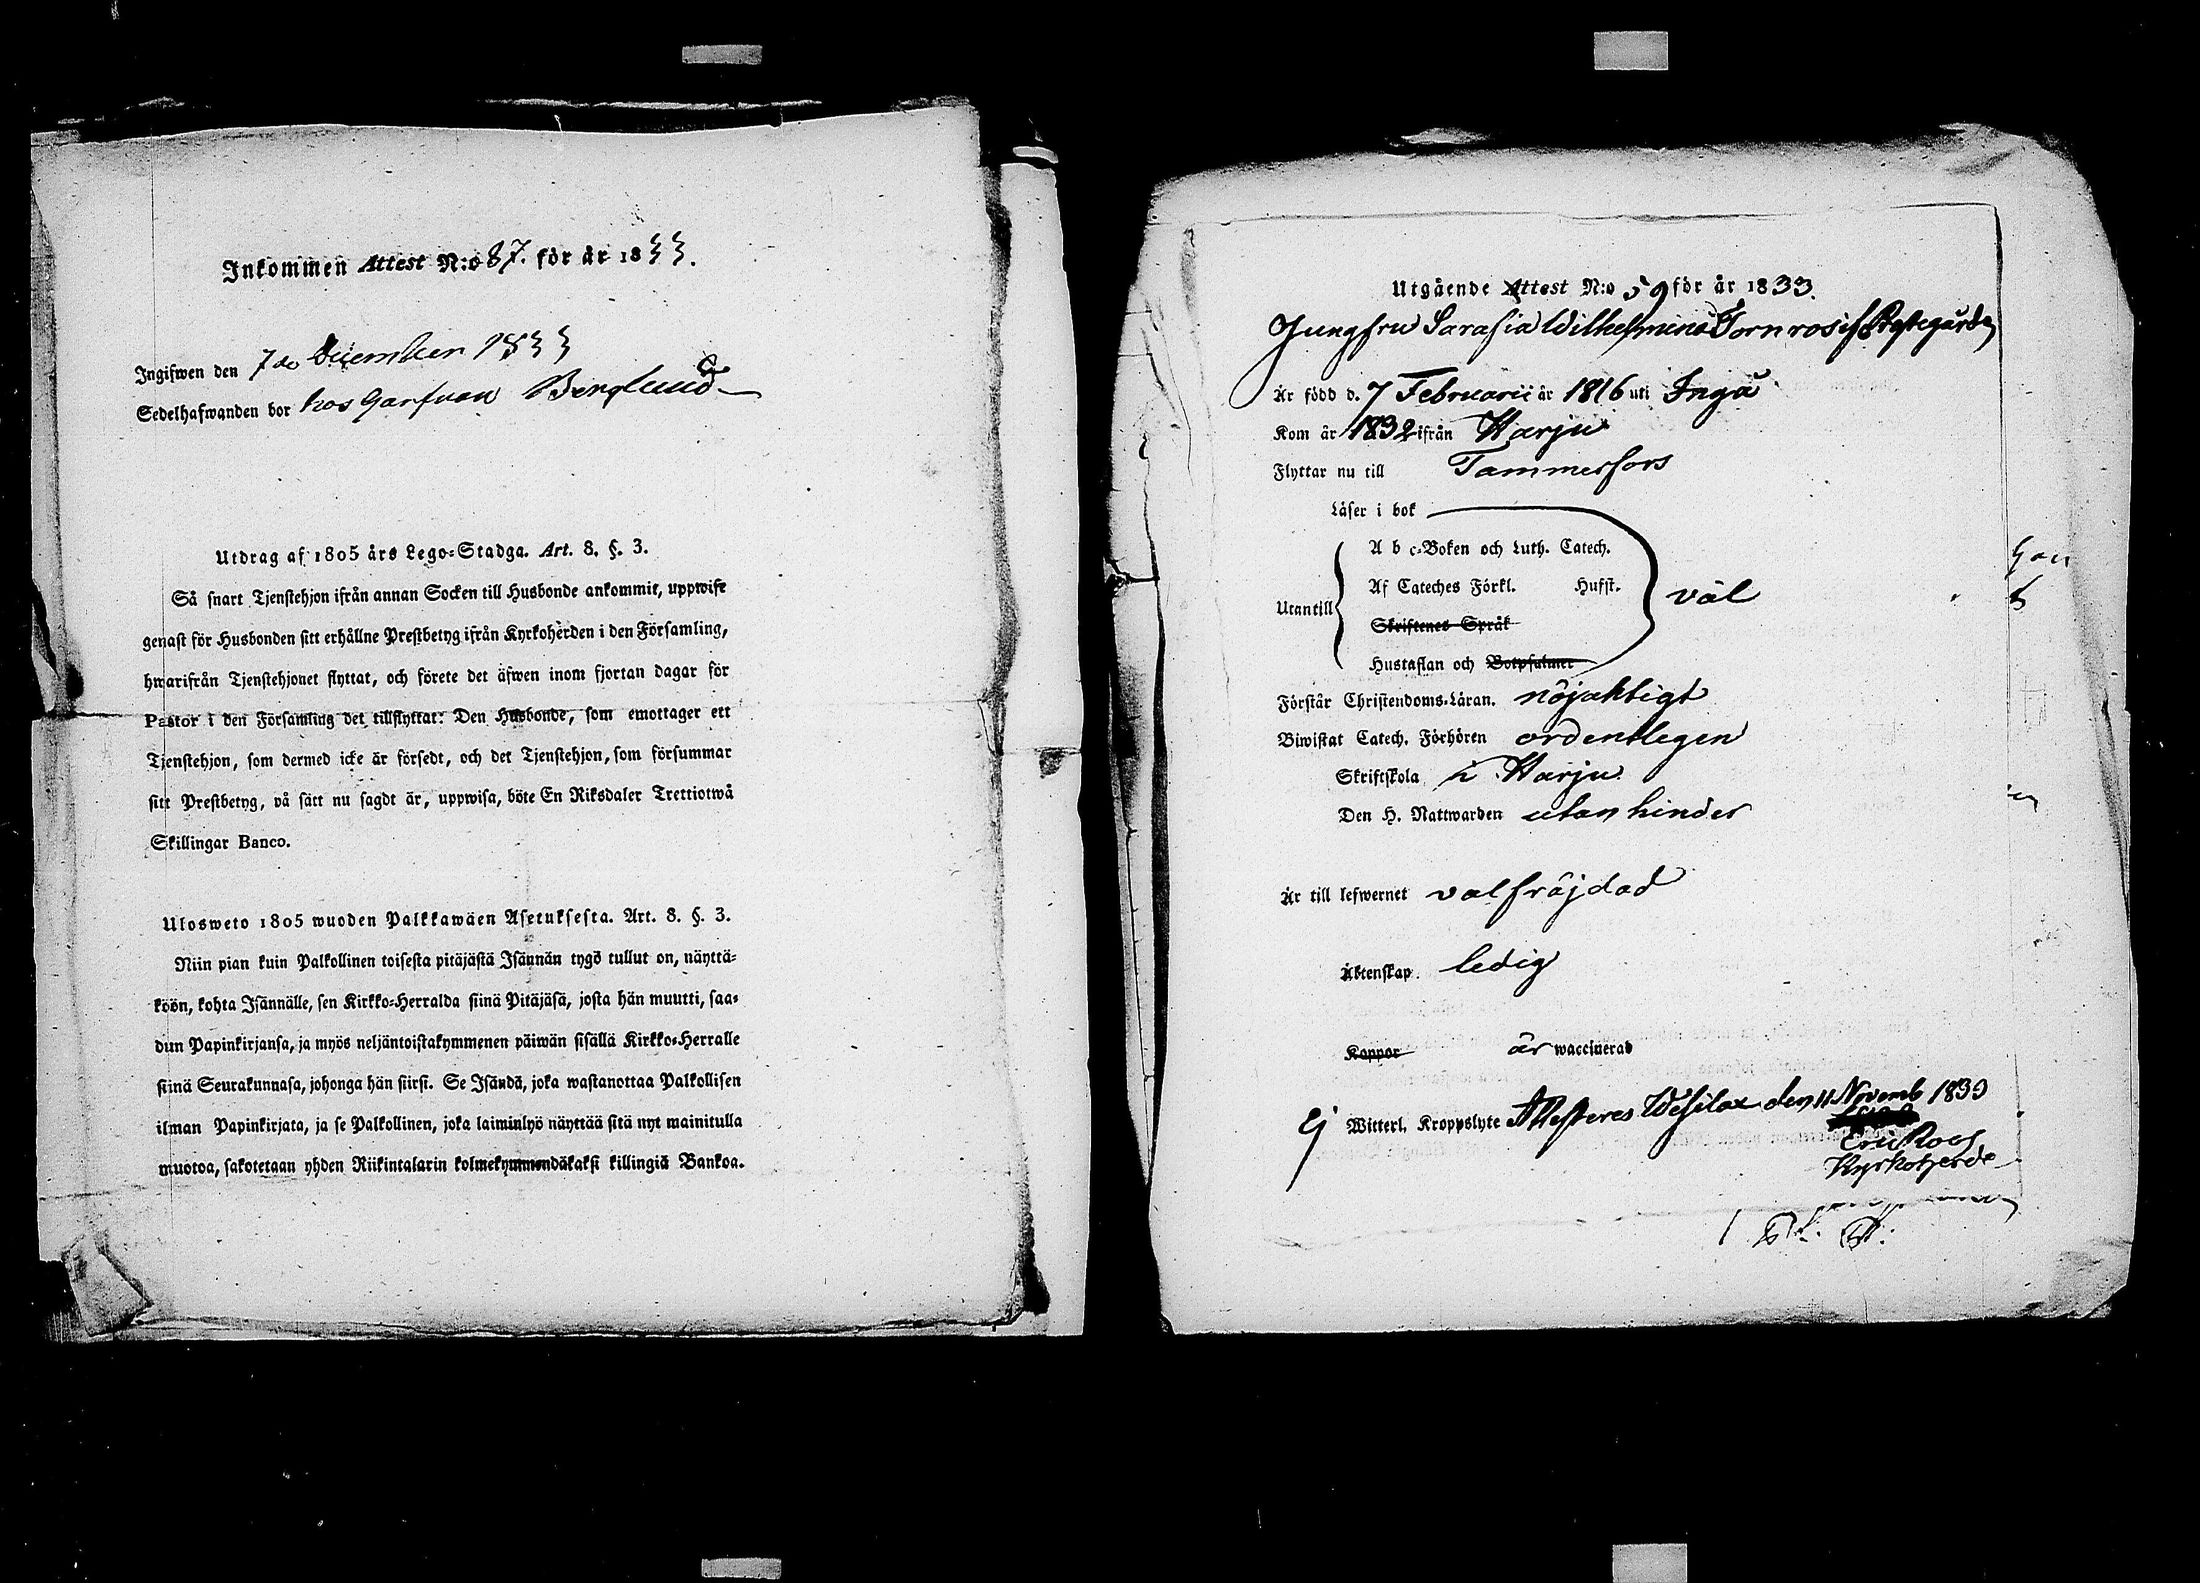 Inkommen Attest N:o 87. för år 1833.
Ingifwen den 7de December 1833
Sedelhafwanden bor hos Garfvaren Berglund
Utdrag af 1805 års Lego-Stadga. Art. 8. §. 3.
Så snart Tjenstehjon ifrån annan Socken till Husbonde ankommit, uppwise
genast för Husbonden sitt erhållne Prestbetyg ifrån Kyrkoherden i den Församling,
hwarifrån Tjenstehjonet flyttat, och förete det äfwen inom fjortan dagar för
Pastor i den Församling det tillflyttat: Den Husbonde, som emottager ett
Tjenstehjon, som dermed icke är försedt, och det Tjenstehjon, som försummar
sitt Prestbetyg, på sätt nu sagdt är, uppwisa, böte En Riksdaler Trettiotwå
Skillingar Banco.
Ulosweto 1805 wuoden Palkkawäen Asetuksesta. Art. 8. §. 3.
Niin pian kuin Palkollinen toisesta pitäjästä Isännän tygö tullut on, näyttä-
köön, kohta Isännälle, sen Kirkko-Herralda siinä Pitäjäsä, josta hän muutti, saa-
dun Papinkirjansa, ja myös neljäntoistakymmenen päiwän sisällä Kirkko-Herralle
siinä Seurakunnasa, johonga hän siirsi. Se Isändä, joka wastanottaa Palkollisen
ilman Papinkirjata, ja se Palkollinen, joka laiminlyö näyttää sitä nyt mainitulla
muotoa, sakotetaan yhden Riikintalarin kolmekymmendäkaksi killingiä Bankoa.
Utgående Attest N:o 59 för år 1833.
Jungfru Sarafia Wilhelmina Tornros if. Prästegården
Är född d. 7 Februarii år 1816 uti Ingå
Kom år 1832 ifrån Harju
Flyttar nu till Tammerfors
Läser i bok
A b c-Boken och Luth. Catech.
Af Cateches Förkl. Husst.
Utantill väl
Skriftenes Språk
Hustaflan och Botpsalmer
Förstår Christendoms-Läran. nöjaktigt
Biwistat Catech. Förhören ordentlegen
Skriftskola i Harju
Den H. Nattwarden utan hinder
Är till lefwernet valfräjdad
Äktenskap ledig
Koppor är waccinerad
Ej Witterl. Kroppslyte Attesteres Wesilax den 11 Novemb 1833
Eric Roos
Kyrkoherde